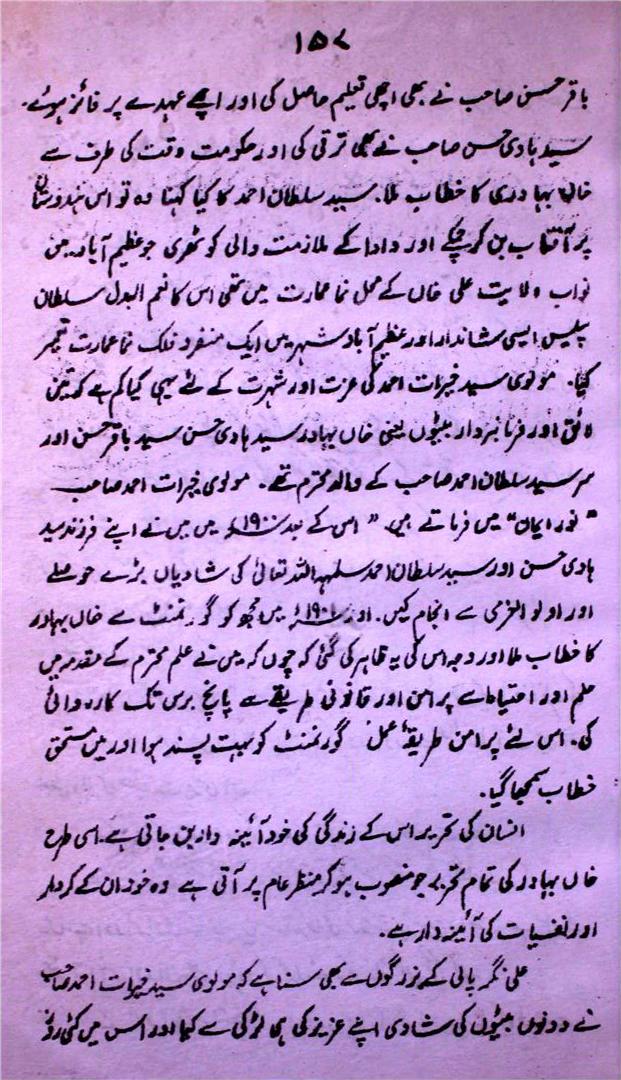 ۱۵۷
باقر حسن صاحب نے بھی اچھی تعلیم حاصل کی اور اچھے عہدے پر فائز ہوئے۔
سید ہادی حسن صاحب نے بھی ترقی کی اور حکومت وقت کی طرف سے
خاں بہادری کا خطاب ملا۔ سید سلطان احمد کا کیا کہنا وہ تو اس ہندوستان
پر آفتاب بن کر چمکے اور دادا کے ملازمت والی کوٹھری جو عظیم آباد میں
نواب ولایت علی خاں کے محل نما عمارت میں تھی اس کا نعم البدل سلطان
پیلیس ایسی شاندار اور عظیم آباد شہر میں ایک منفرد فلک نما عمارت تعمیر
کیا۔ مولوی سید خیرات احمد کی عزت اور شہرت کے لئے یہی کیا کم ہے کہ تین
لائق اور فرمانبردار بیٹوں یعنی خاں بہادر سید ہادی حسن سید باقر حسن اور
سر سید سلطان احمد صاحب کے والد محترم تھے۔ مولوی خیرات احمد صاحب
"نور ایمان" میں فرماتے ہیں "اس کے بعد ۱۹۰۰ء میں میں نے اپنے فرزند سید
ہادی حسن اور سید سلطان احمد سلمہہ اللہ تعالیٰ کی شادیاں بڑے حوصلے
اور اولو العزمی سے انجام کیں۔ اور ۱۹۰۱ء میں مجھ کو گورنمنٹ سے خاں بہادر
کا خطاب ملا اور وجہ اس کی یہ ظاہر کی گئی کہ چوں کہ میں نے علم محترم کے مقدمہ میں
حلم اور احتیاط سے پرامن اور قانونی طریقے سے پانچ برس تک کارروائی
کی۔ اس لئے پرامن طریقۂ عمل گورنمنٹ کو بہت پسند ہوا اور میں مستحق
خطاب سمجھا گیا۔
انسان کی تحریر اس کے زندگی کی خود آئینہ دار بن جاتی ہے۔ اسی طرح
خاں بہادر کی تمام تحریر جو منصوب ہو کر منظر عام پر آتی ہے وہ خود ان کے کردار
اور نفسیات کی آئینہ دار ہے۔
علی نگر پالی کے بزرگوں سے بھی سنا ہے کہ مولوی سید خیرات احمد صاحب
نے دونوں بیٹوں کی شادی اپنے عزیز کی ہی لڑکی سے کیا اور اس میں کئی